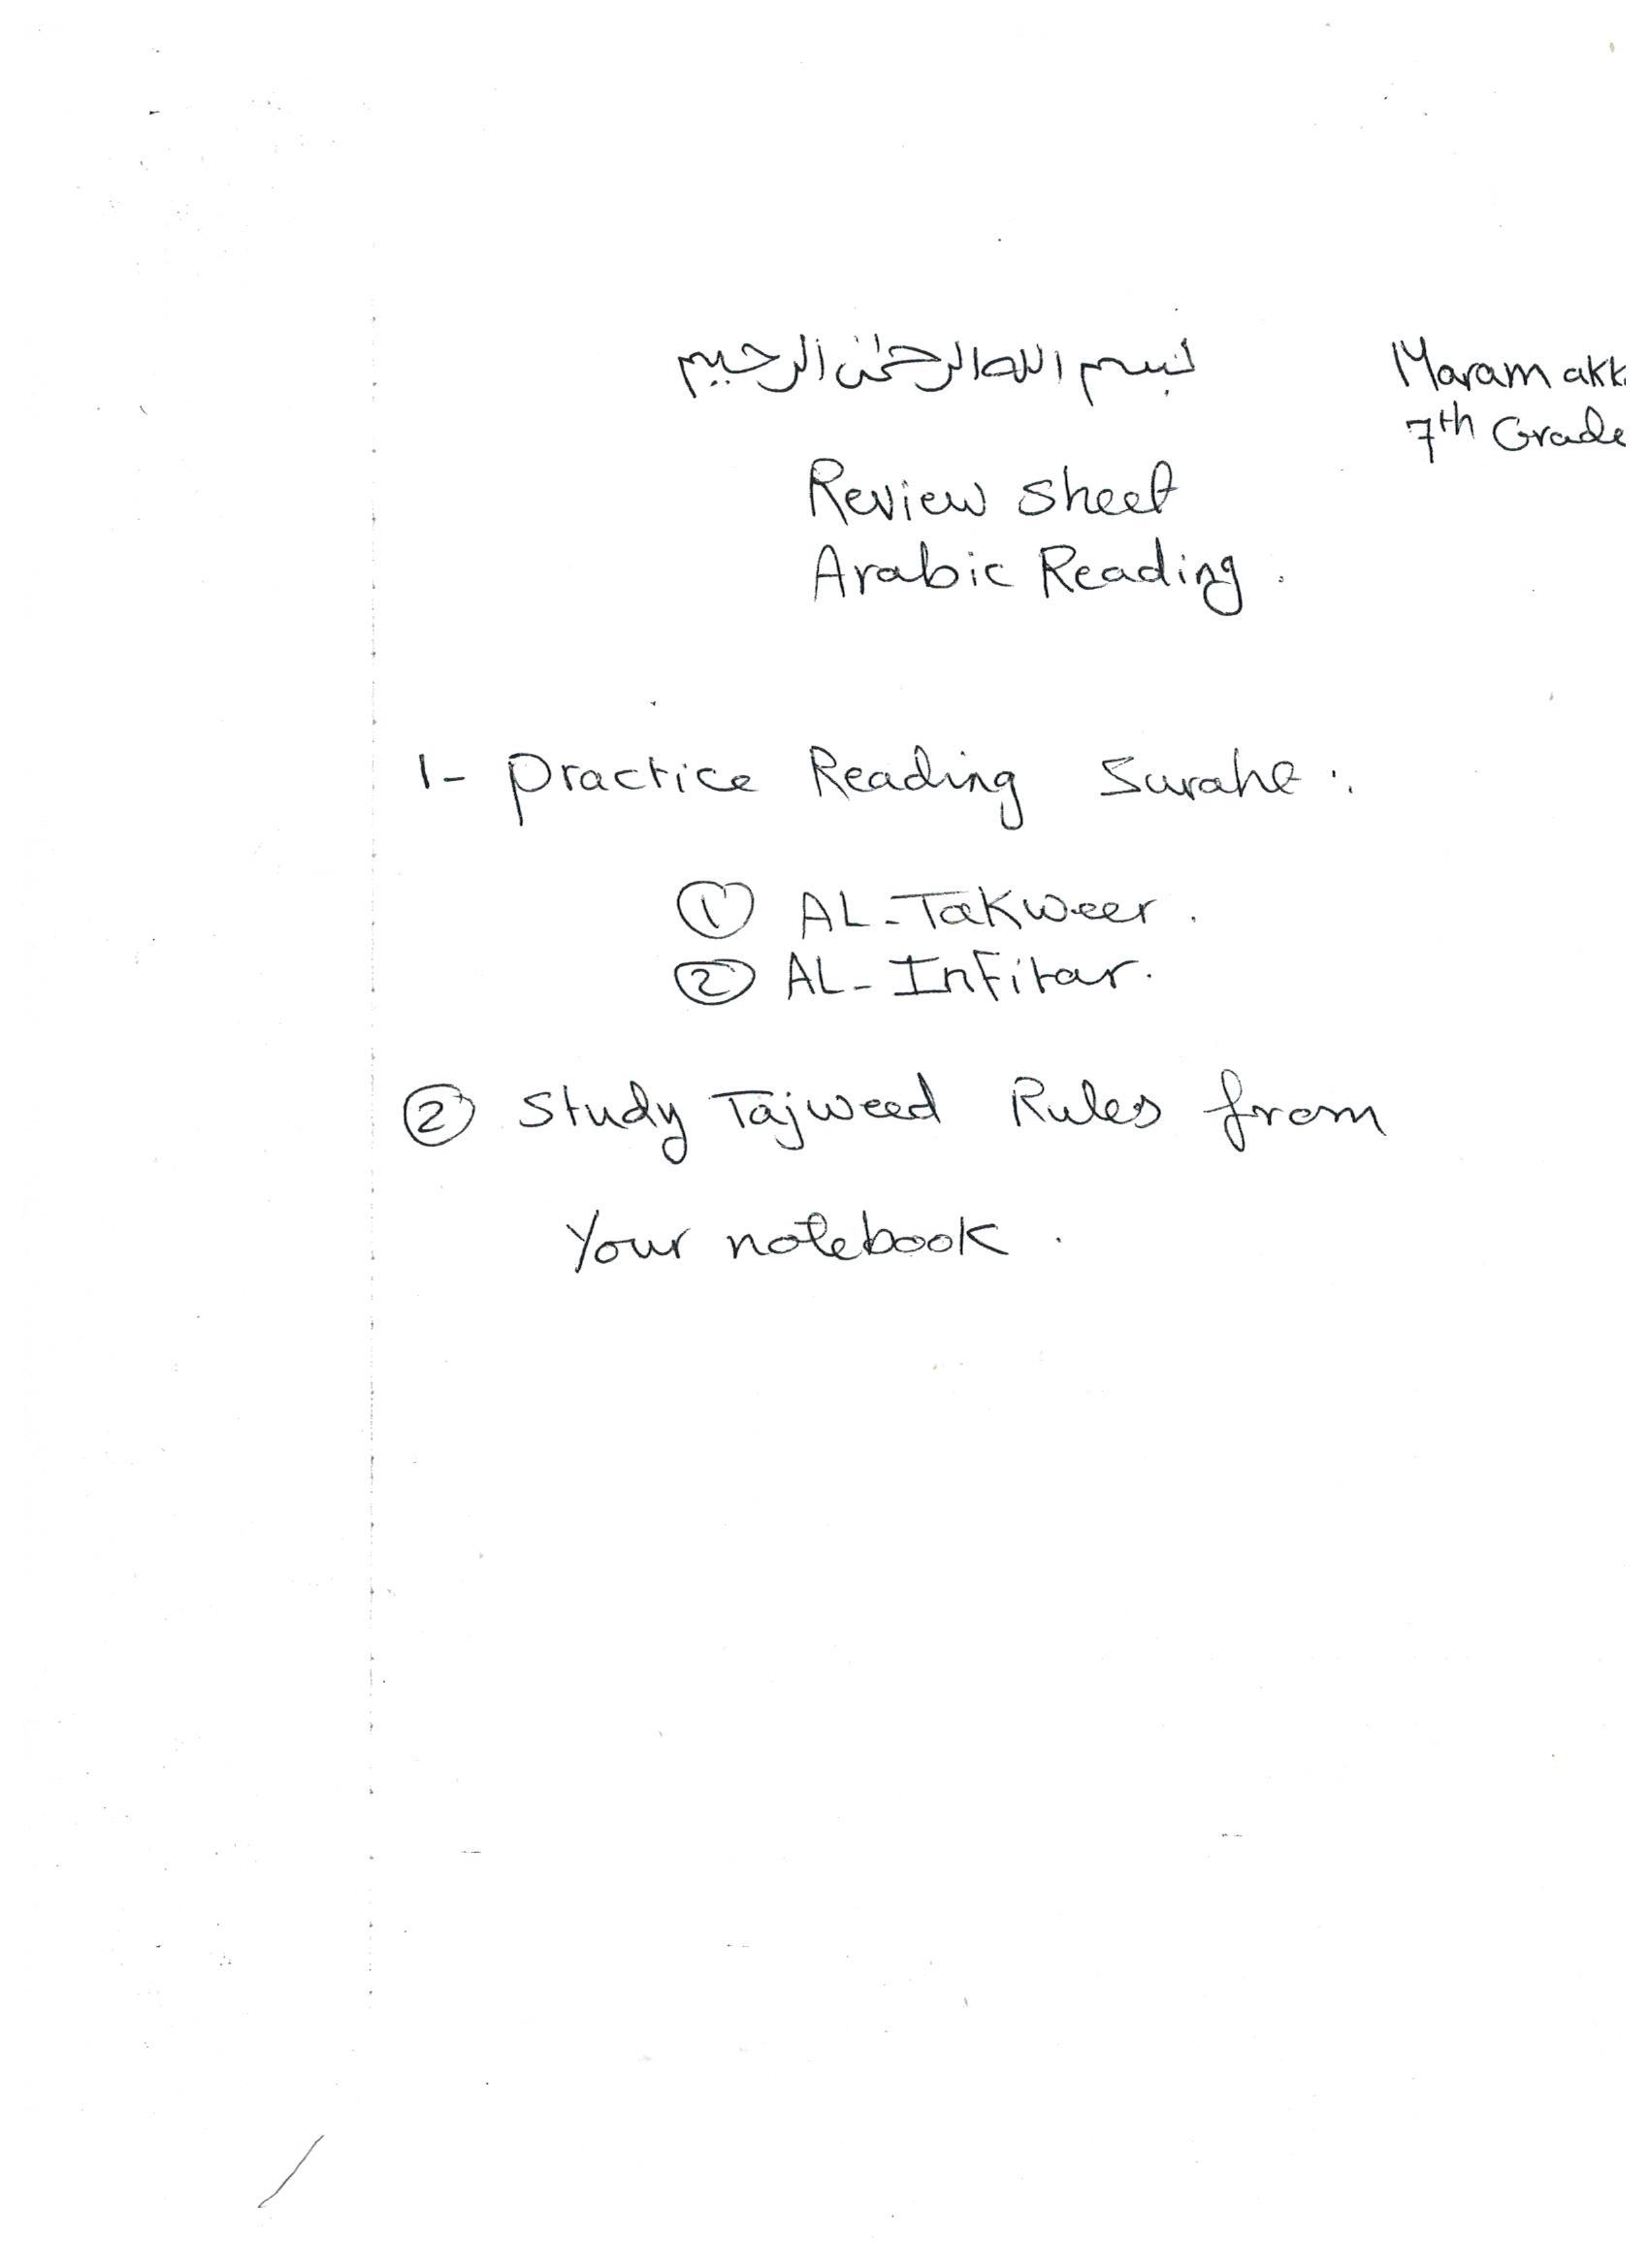 بسم الله الرحمٰن الرحيم
Maram akk
7th Grade
Review Sheet
Arabic Reading.
1- Practice Reading Surahe:
① AL-Takweer.
② AL-Infitar.
② Study Tajweed Rules from
Your notebook.